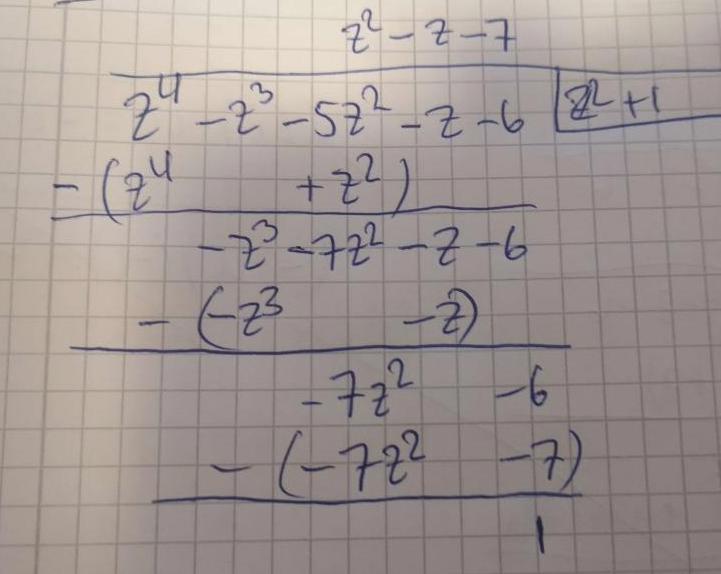 z² - z - 7
z⁴ - z³ - 5z² - z - 6 | z² + 1
- (z⁴ + z²)
- z³ - 7z² - z - 6
- (-z³ - z)
- 7z² - 6
- (-7z² - 7)
1